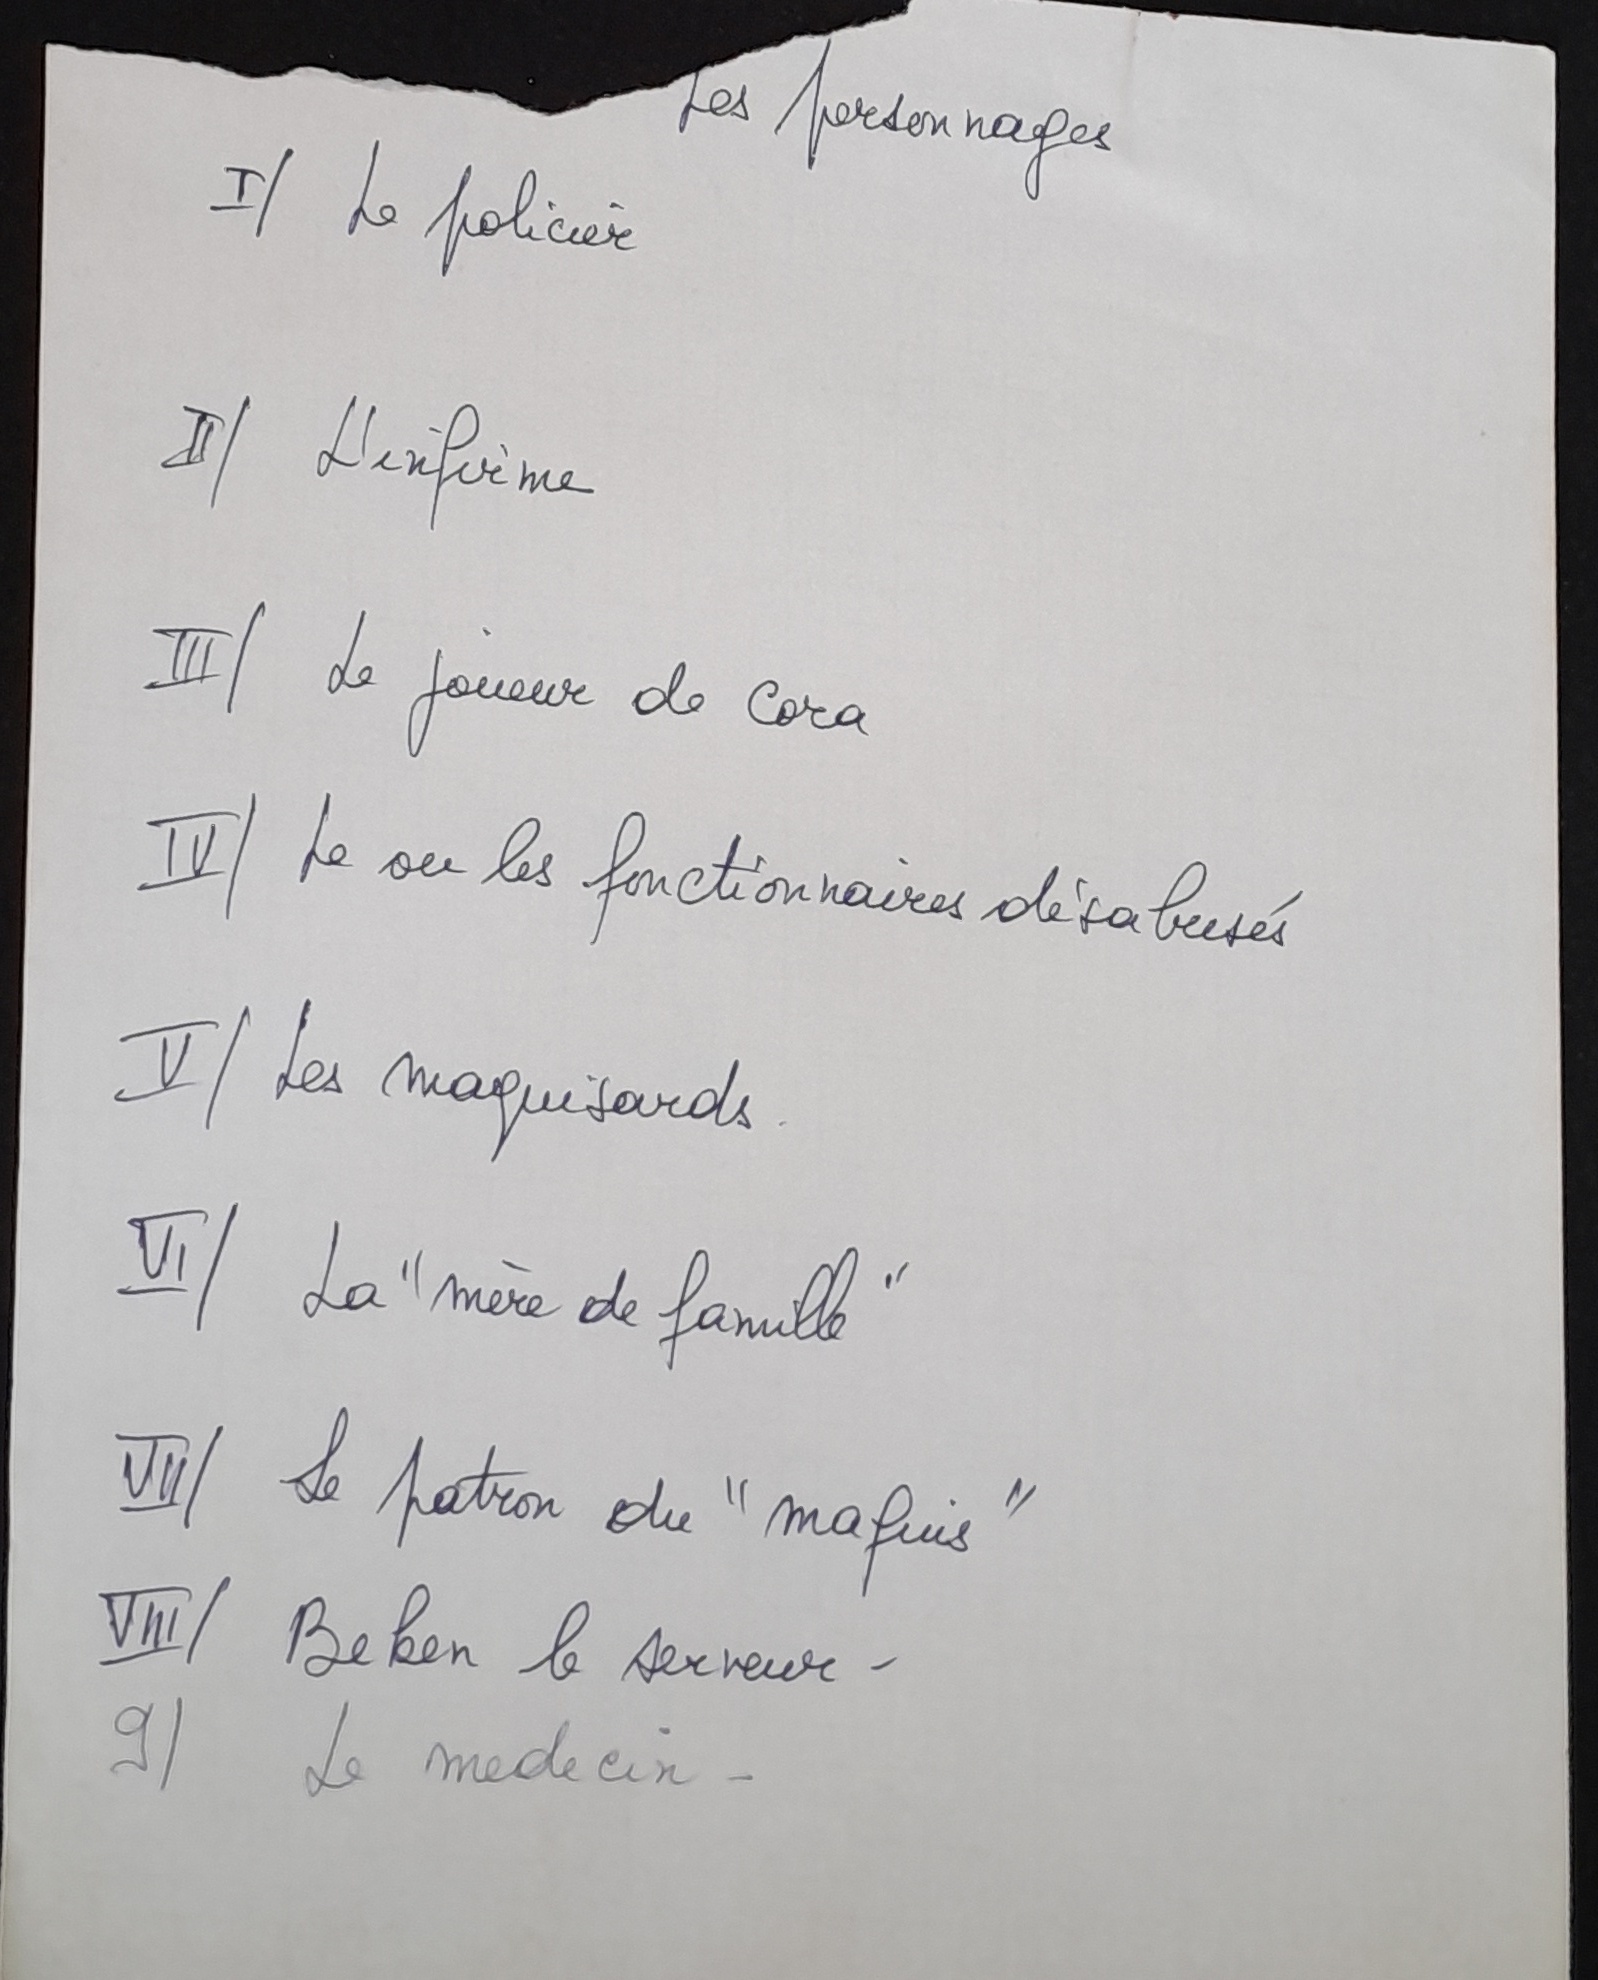 Les personnages
I/ Le policier
II/ L'infirme
III/ Le joueur de cora
IV/ Le ou les fonctionnaires désabusés
V/ Les maquisards.
VI/ La "mère de famille"
VII/ Le patron du "maquis"
VIII/ Beken le serveur -
9/ Le medecin -